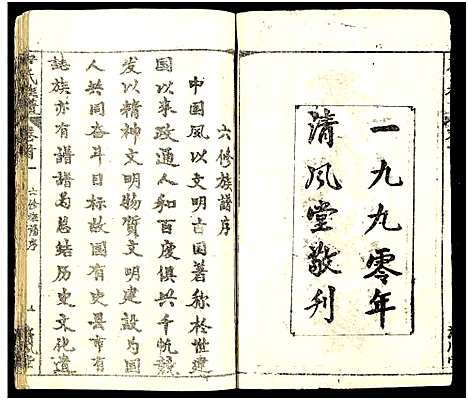 一九九零年
清风堂敬刊
六修族谱序
中国夙以文明古国著称於世建
国以来政通人和百废俱兴千帆竞
发以精神文明物质文明建设为国
人共同奋斗目标故国有史县市有
誌族亦有谱谱易总结历史文化遗
氏族
卷首一
六修族谱序
清风堂